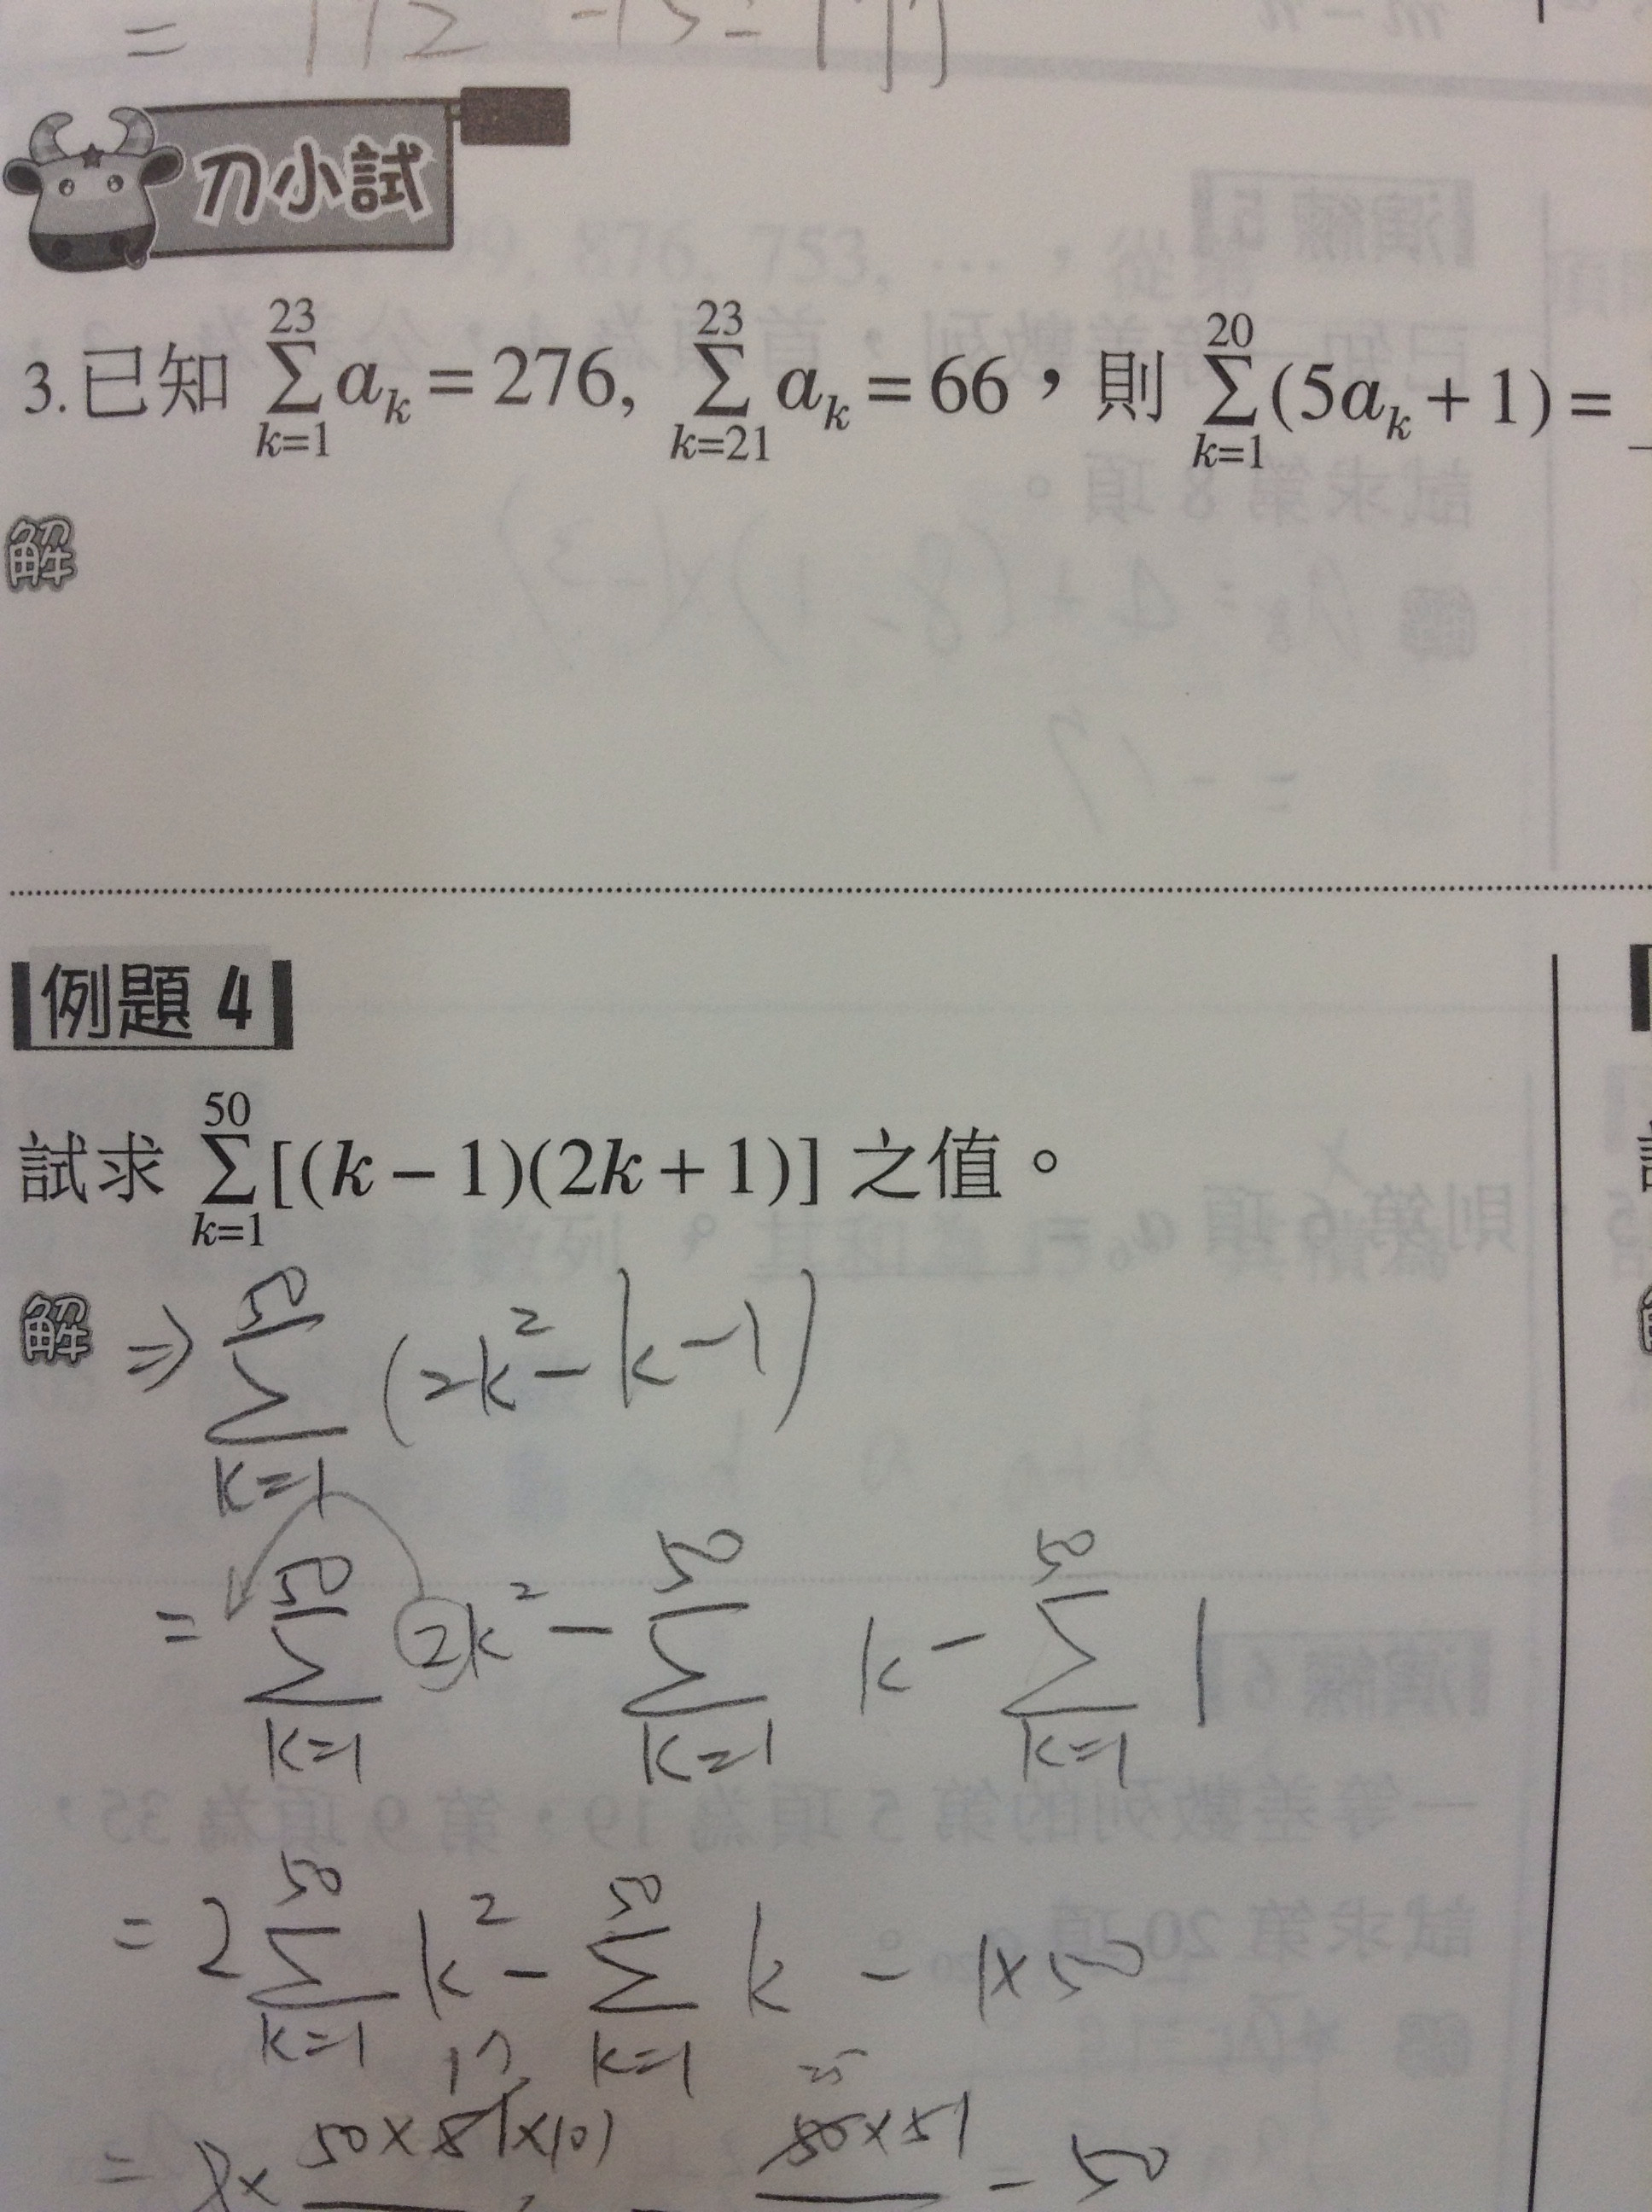 = 192 -15=177
刀小試
3.已知 \sum_{k=1}^{23} a_k = 276, \sum_{k=21}^{23} a_k = 66，則 \sum_{k=1}^{20} (5a_k + 1) =
解
例題 4
試求 \sum_{k=1}^{50} [(k − 1)(2k + 1)] 之值。
解 ⇒ \sum_{k=1}^{50} (2k^2 − k − 1)
= \sum_{k=1}^{50} 2k^2 − \sum_{k=1}^{50} k − \sum_{k=1}^{50} 1
= 2 \sum_{k=1}^{50} k^2 − \sum_{k=1}^{50} k − 1×50
17 25
= 2× 50×51×101 − 50×51 − 50